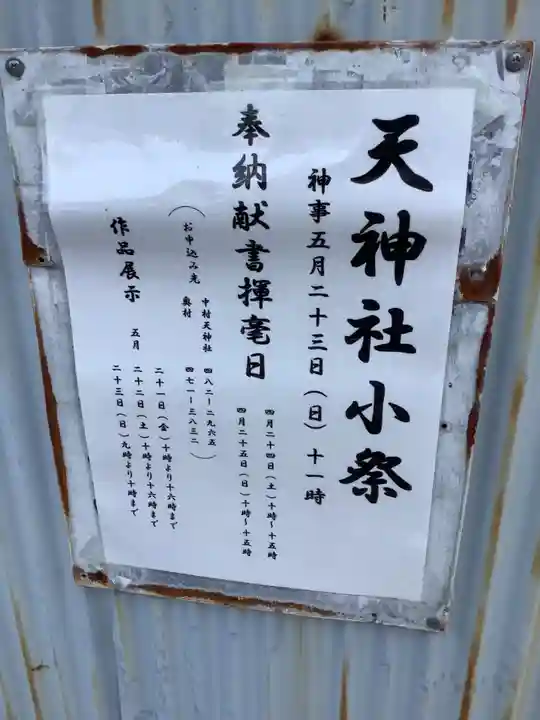 天神社小祭
神事五月二十三日（日）十一時
奉納献書揮毫日
四月二十四日（土）十時～十五時
四月二十五日（日）十時～十五時
（お申込み先 中村天神社 四八二ー二九六五
奥村 四七一ー三八三二）
作品展示 五月
二十一日（金）十時より十六時まで
二十二日（土）十時より十六時まで
二十三日（日）九時より十時まで